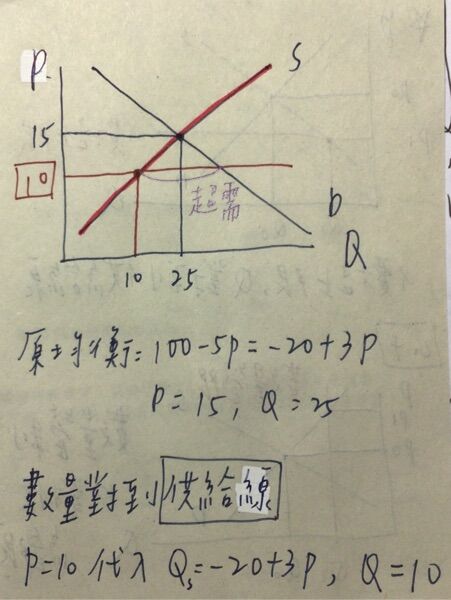 P
S
15
10
超需
D
Q
10 25
原均衡=100-5P=-20+3P
P=15, Q=25
數量對到供給線
P=10代入 Qs=-20+3P, Q=10